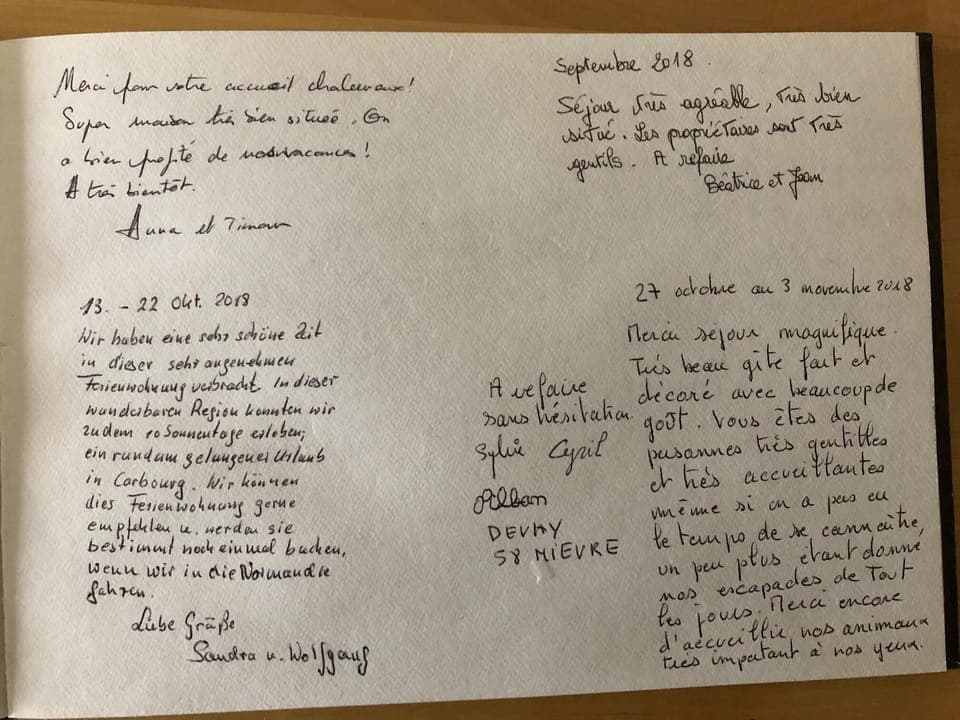 Merci pour votre accueil chaleureux!
Super maison très bien située. On
a bien profité de nos vacances!
A très bientôt.
Anna et
Septembre 2018.
Séjour très agréable, très bien
situé. Les propriétaires sont très
gentils. A refaire
Béatrice et Jean
13. - 22 Okt. 2018
Wir haben eine sehr schöne Zeit
in dieser sehr angenehmen
Ferienwohnung verbracht. In dieser
wunderbaren Region konnten wir
zudem 10 Sonnentage erleben;
ein rundum gelungener Urlaub
in Carbourg. Wir können
dies Ferienwohnung gerne
empfehlen u. werden sie
bestimmt noch einmal buchen,
wenn wir in die Normandie
fahren.
Liebe Grüße
Sandra u. Wolfgang
27 octobre au 3 novembre 2018
Merci séjour magnifique.
Très beau gîte fait et
décoré avec beaucoup de
goût. Vous êtes des
personnes très gentilles
et très accueillantes
même si on a pas eu
le temps de se connaître,
un peu plus étant donné
nos escapades de tout
les jours. Merci encore
d'accueillir nos animaux
très important à nos yeux.
A refaire
sans hésitation.
Sylvie Cyril
Alban
DEVAY
58 NIEVRE